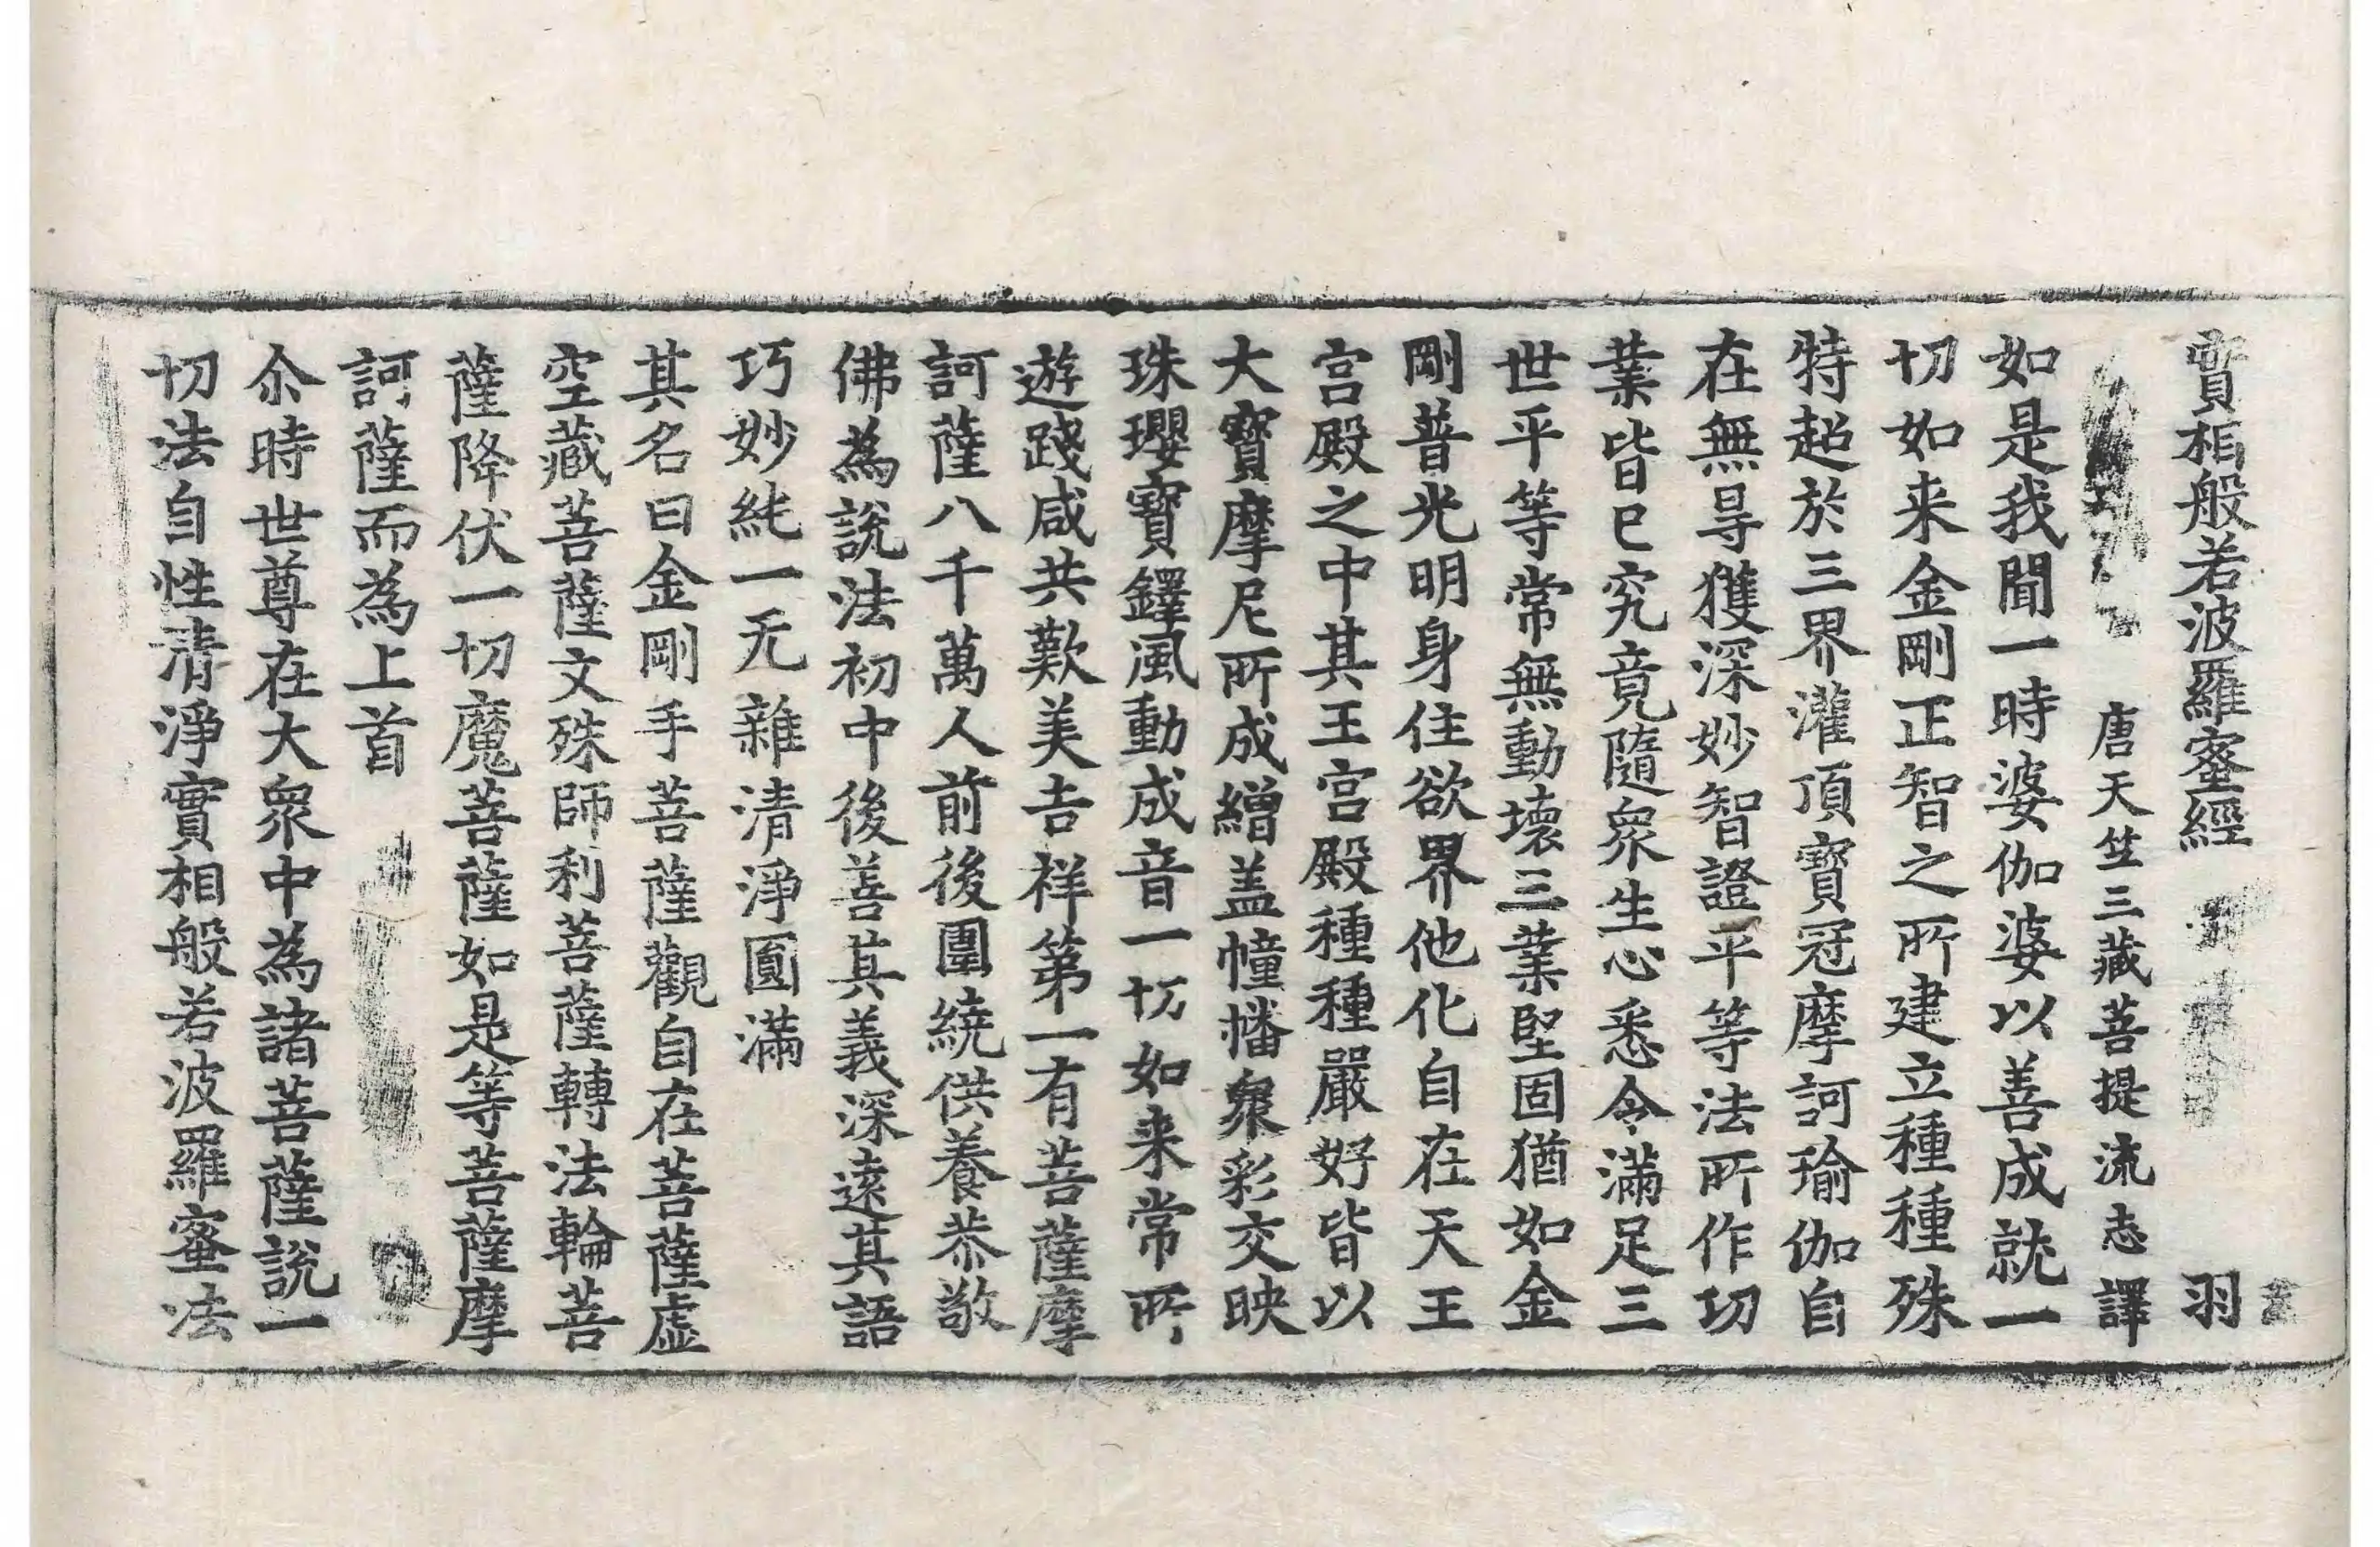 實相般若波羅蜜經 羽
唐天竺三藏菩提流志譯
如是我聞一時婆伽婆以善成就一
切如来金剛正智之所建立種種殊
特超於三界灌頂寶冠摩訶瑜伽自
在無㝵獲深妙智證平等法所作切
業皆巳究竟隨衆生心悉令滿足三
世平等常無動壞三業堅固猶如金
剛普光明身住欲界他化自在天王
宫殿之中其王宫殿種種嚴好皆以
大寶摩尼所成繒盖幢幡衆彩交映
珠瓔寶鐸風動成音一切如来常所
遊踐咸共歎美吉祥第一有菩薩摩
訶薩八千萬人前後圍繞供養恭敬
佛為說法初中後善其義深遠其語
巧妙純一无雜清淨圓滿
其名曰金剛手菩薩觀自在菩薩虛
空藏菩薩文殊師利菩薩轉法輪菩
薩降伏一切魔菩薩如是等菩薩摩
訶薩而為上首
尒時世尊在大衆中為諸菩薩說一
切法自性清淨實相般若波羅蜜法